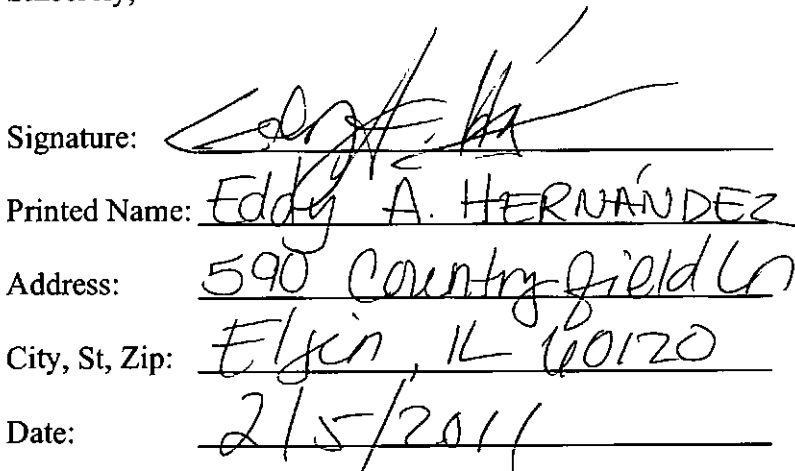 Signature:
Printed Name: Eddy A. HERNÁNDEZ
Address: 590 Countryfield Ln
City, St, Zip: Elgin, IL 60120
Date: 2/5/2011